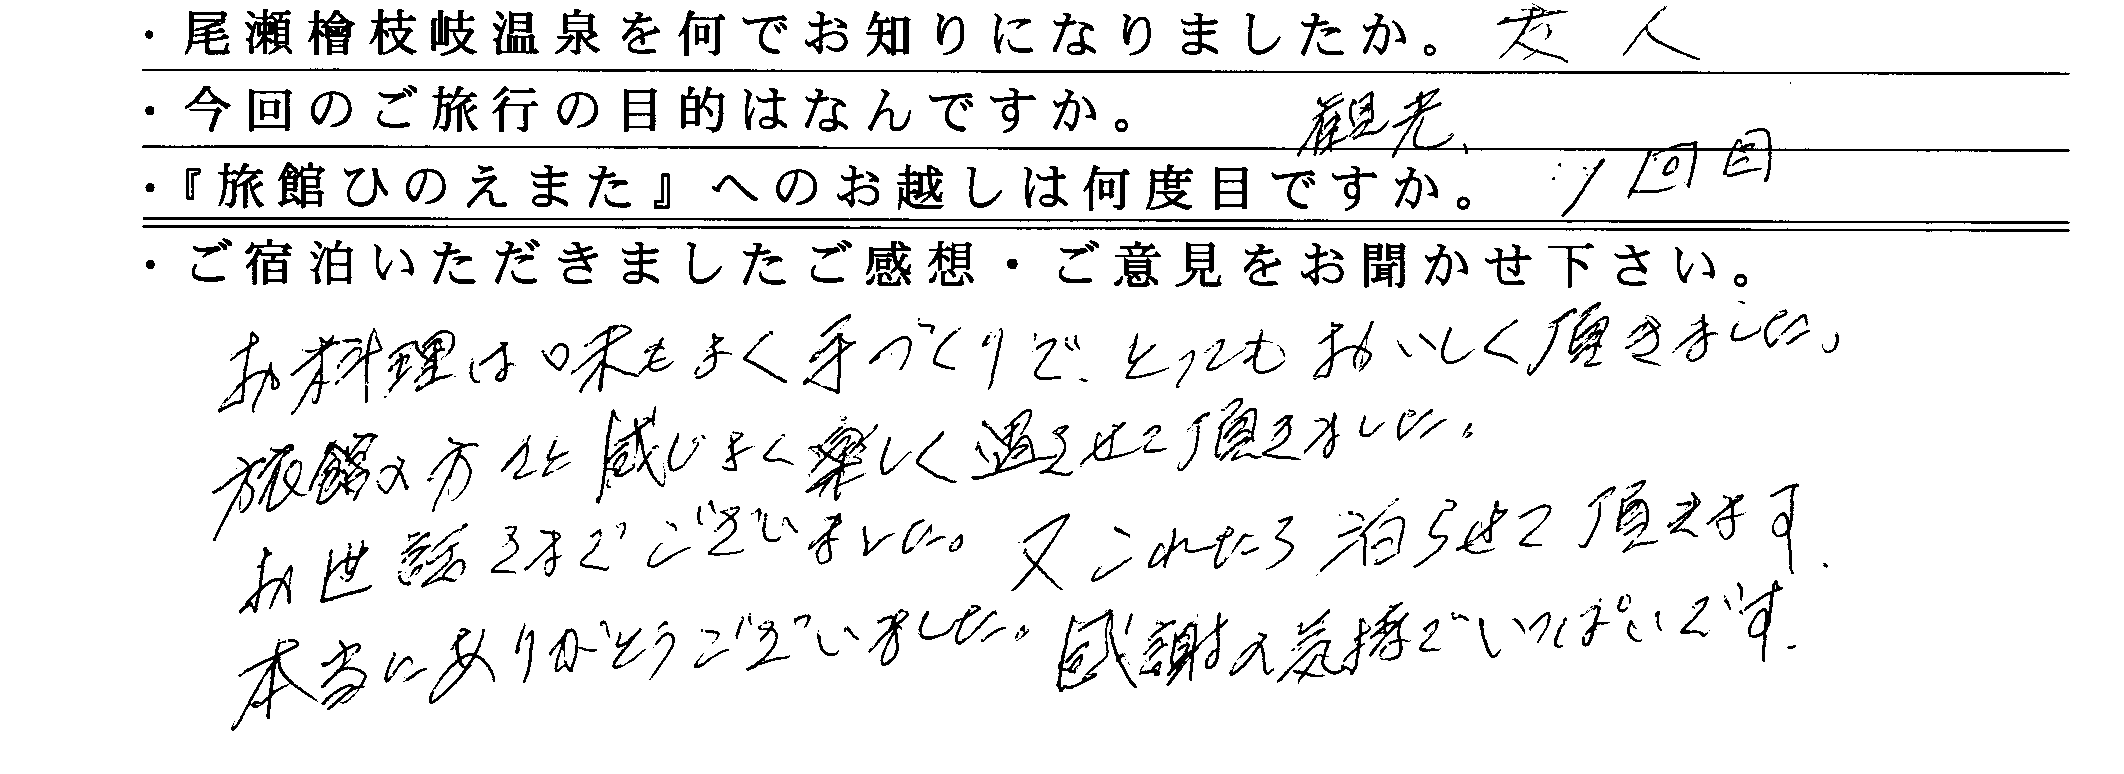 ・尾瀬檜枝岐温泉を何でお知りになりましたか。 友人
・今回のご旅行の目的はなんですか。 観光、
・『旅館ひのえまた』へのお越しは何度目ですか。 1回目
・ご宿泊いただきましたご感想・ご意見をお聞かせ下さい。
お料理は味もよく手づくりで、とってもおいしく頂きました。
旅館の方々と感じよく楽しく過させて頂きました。
お世話さまでございました。又これたら泊らせて頂きます.
本当にありがとうございました。感謝の気持でいっぱいです.